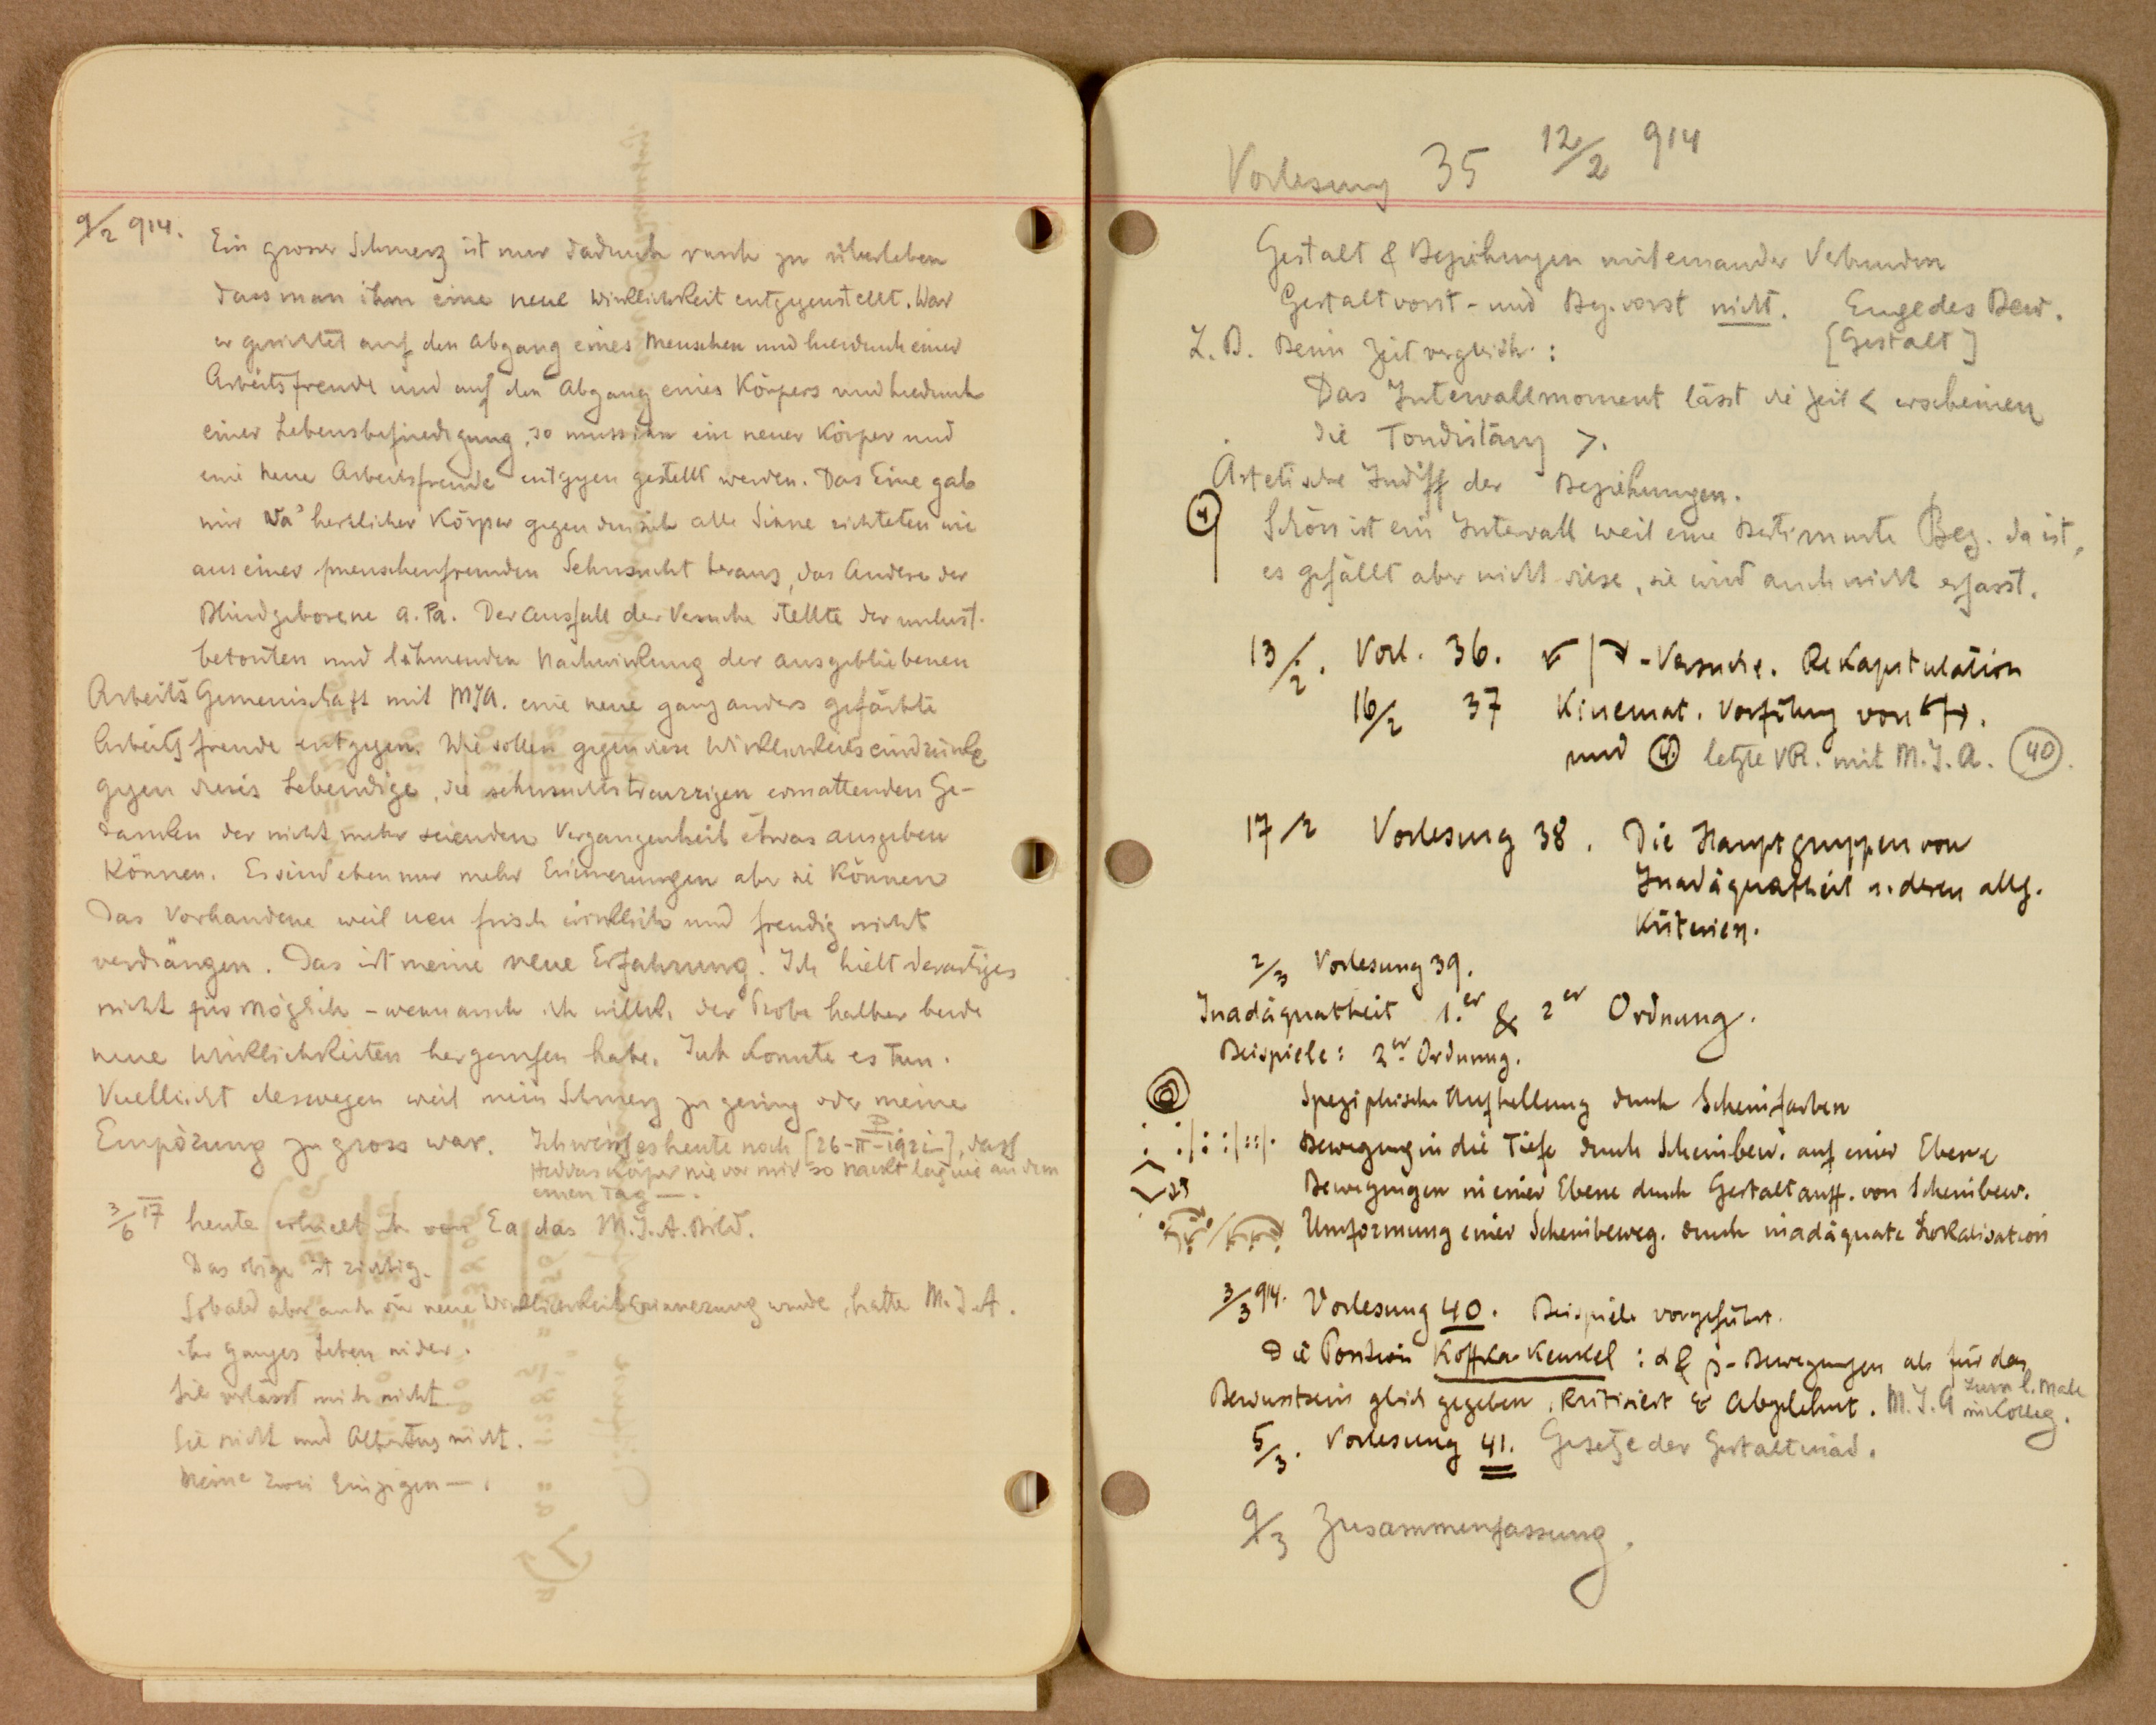 9/2 914.
Ein grosser Schmerz ist nur dadurch rasch zu überleben
dass man ihm eine neue Wirklichkeit entgegenstellt. War
er gerichtet auf den Abgang eines Menschen und hiedurch einer
Arbeitsfreude und auf den Abgang eines Körpers und hiedurch
einer Lebensbefriedigung, so muss ihm ein neuer Körper und
eine neue Arbeitsfreude entgegen gestellt werden. Das Eine gab
mir herrlicher Körper gegen den sich alle Sinne richteten wie
aus einer menschenfremden Sehnsucht heraus, das Andere der
Blindgeborene a. Pa. Der Ausfall der Versuche stellte der unlust-
betonten und lähmenden Nachwirkung der ausgebliebenen
Arbeits Gemeinschaft mit MJA. eine neue ganz anders gefärbte
Arbeitsfreude entgegen. Wie sollen gegen diese Wirklichkeitseindrücke
gegen dieses Lebendige, die sehnsuchtstraurigen ermattenden Ge-
danken der nicht mehr seienden Vergangenheit etwas ausgeben
können. Es sind eben nur mehr Erinnerungen aber sie können
das Vorhandene weil neu frisch wirklich und freudig nicht
verdrängen. Das ist meine neue Erfahrung. Ich hielt derartiges
nicht für möglich - wenn auch ich willk. der Probe halber beide
neue Wirklichkeiten hergerufen habe. Ich konnte es tun.
Vielleicht deswegen weil mein Schmerz zu gering oder meine
Empörung zu gross war. Ich weiss es heute noch [26-II-1921], dass
Körper nie vor mir so nackt lag wie an dem
einen Tag —.
3/6 17 heute erhielt ich von Ea das M.J.A. Bild.
Das obige ist richtig.
Sobald aber auch die neue Wirklichkeit Erinnerung wurde, hatte M.J.A.
ihr ganzes Leben wider.
Sie verlässt mich nicht
Sie nicht und Albertus nicht.
Meine zwei Einzigen —.
Vorlesung 35 12/2 914
Gestalt & Beziehungen miteinander Verbunden
Gestaltvorst- und Bez.vorst nicht. Enge des Bew.
[Gestalt]
Z.B. Beim Zeitvergleich:
Das Intervallmoment lässt die Zeit < erscheinen
die Tondistanz >.
Ästetische Indiff der Beziehungen.
4 Schön ist ein Intervall weil eine bestimmte Bez. da ist,
es gefällt aber nicht diese, sie wird auch nicht erfasst.
13/2. Vorl. 36. ↙|↘ - Versuche. Rekapitulation
16/2 37 Kinemat. Vorführung von ↔.
und 4 letzte VR. mit M.J.A. 40.
17/2 Vorlesung 38. Die Hauptgruppen von
Inadäquatheit u. deren allg.
Kriterien.
2/3 Vorlesung 39.
Inadäquatheit 1.er & 2er Ordnung.
Beispiele: 2er Ordnung.
Speziphische Aufhellung durch Scheinfarben
Bewegung in die Tiefe durch Scheinbew. auf einer Ebene
Bewegungen in einer Ebene durch Gestaltauff. von Scheinbew.
Umformung einer Scheinbeweg. durch inadäquate Lokalisation
3/3 914. Vorlesung 40. Beispiele vorgeführt.
Die Position Koffka-Kenkel: α & β - Bewegungen als für das
Bewusstsein gleich gegeben, kritisiert & abgelehnt. M.J.A zum l. Male
im Colleg.
5/3. Vorlesung 41. Gesetze der Gestaltinad.
9/3 Zusammenfassung.